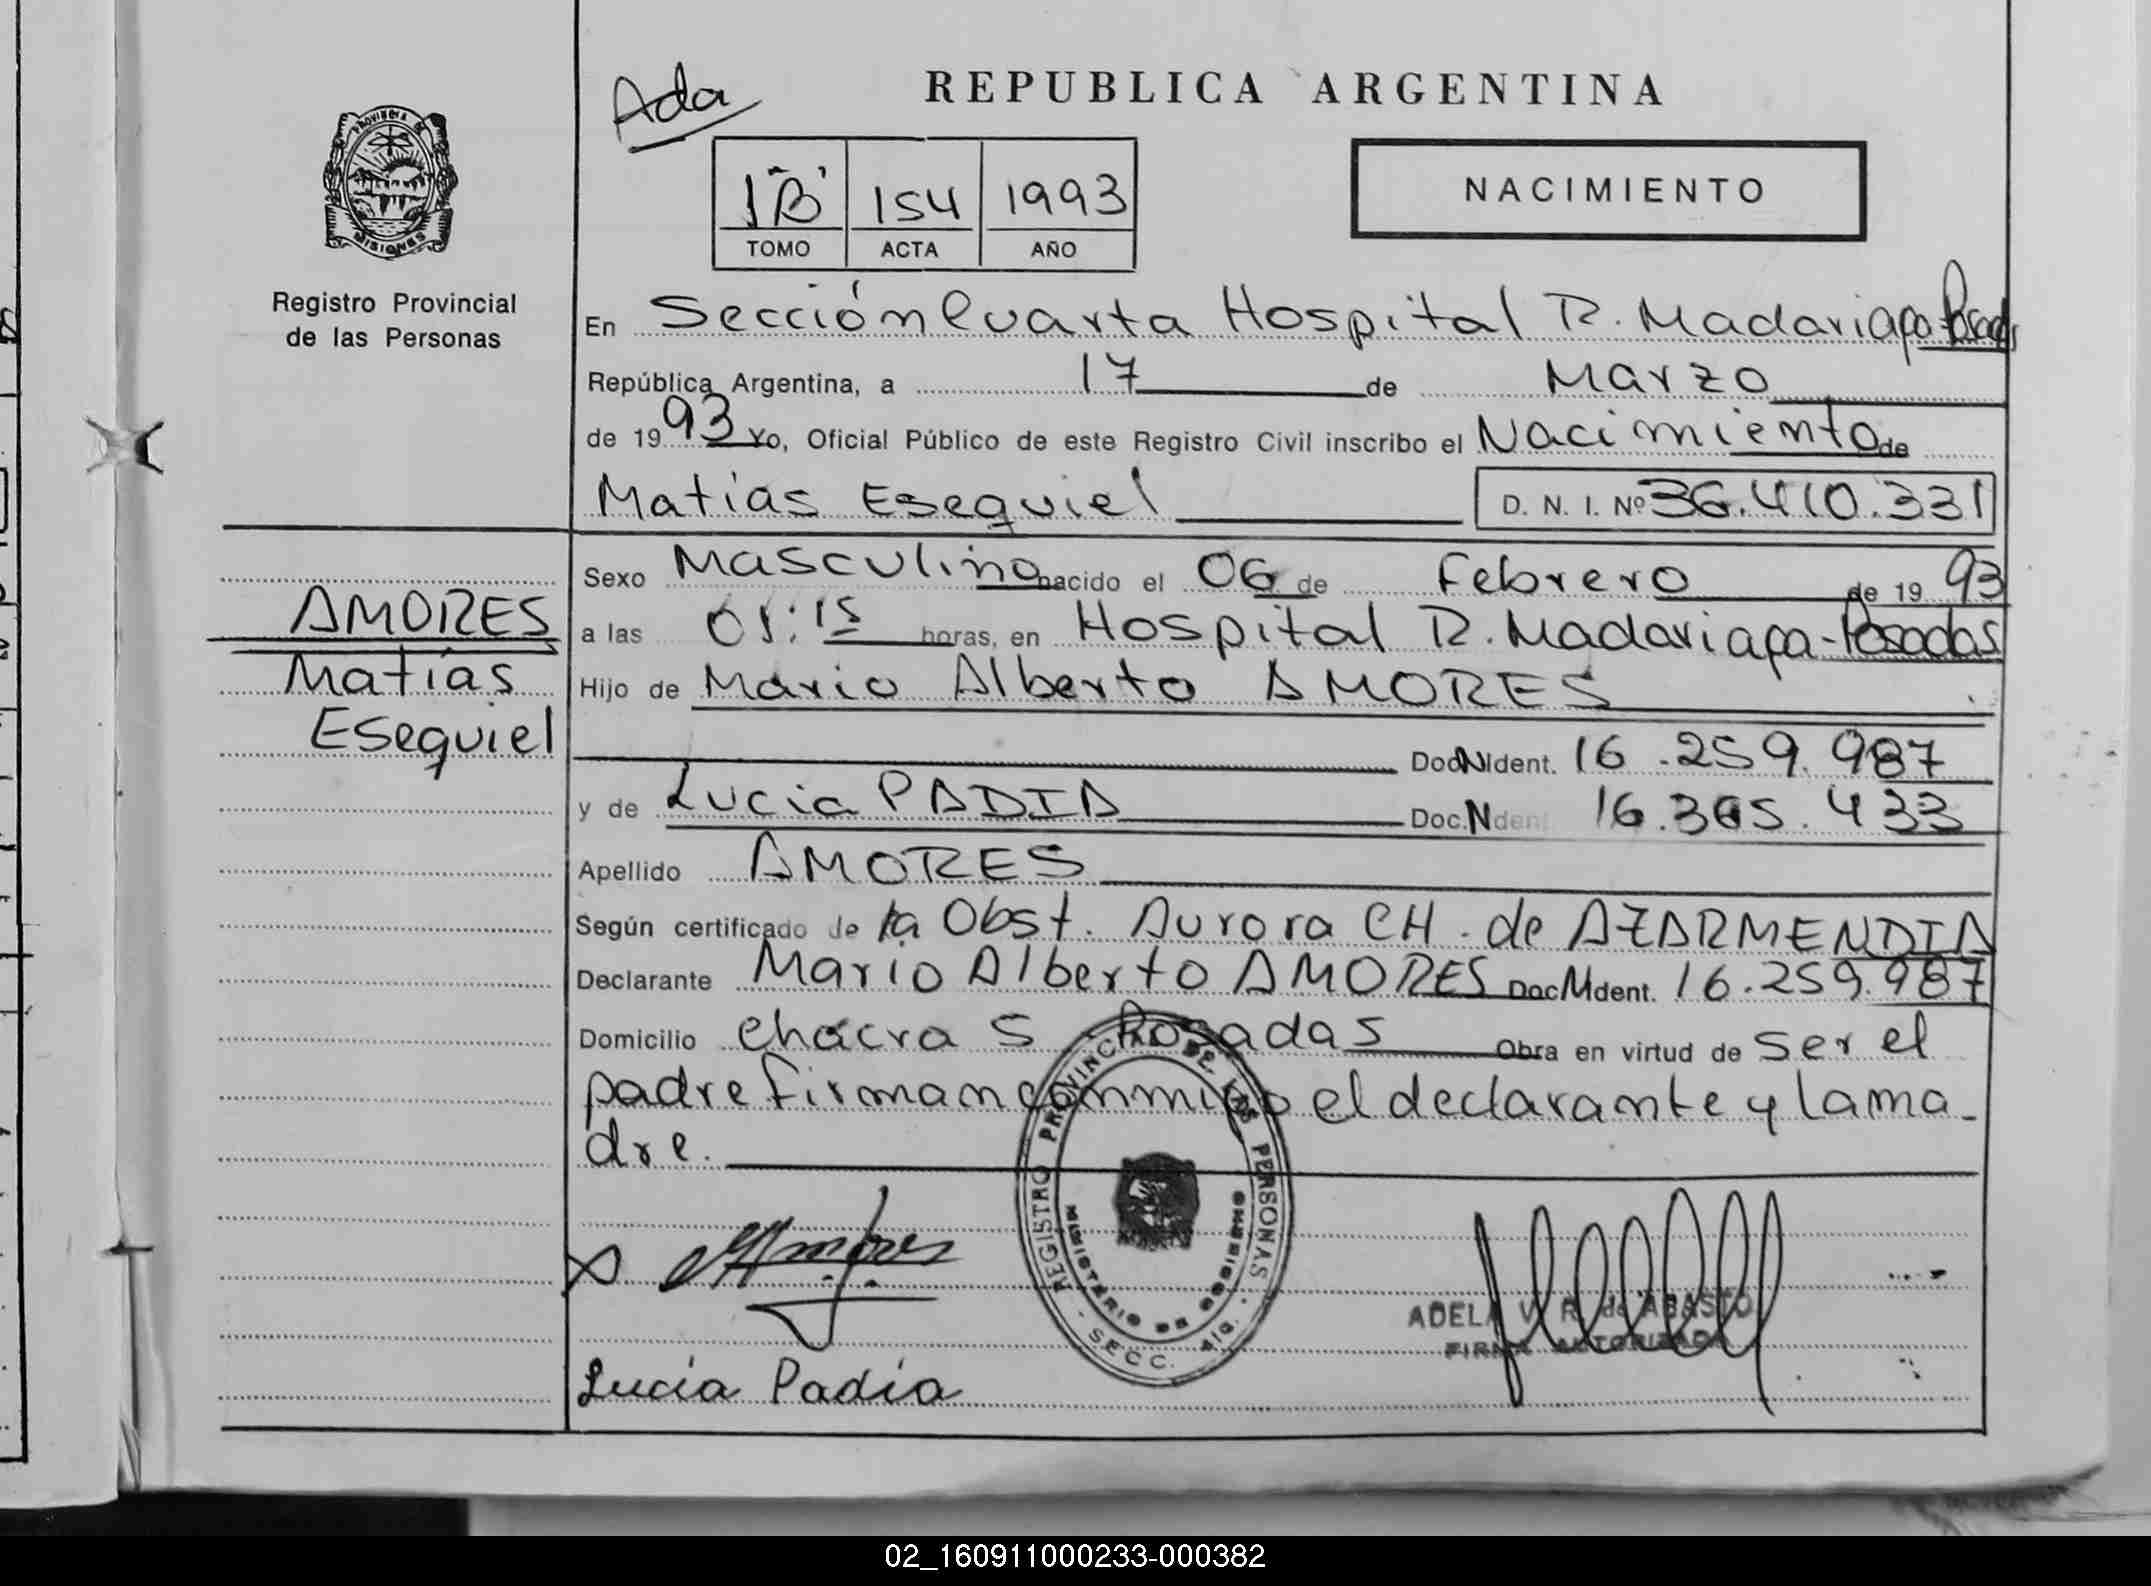 Ada
REPUBLICA ARGENTINA
PROVINCIA DE
MISIONES
Registro Provincial
de las Personas
1"B" 154 1993
TOMO ACTA AÑO
NACIMIENTO
En Sección Cuarta Hospital R. Madariaga-Posadas
República Argentina, a 17 de Marzo
de 1993 Yo, Oficial Público de este Registro Civil inscribo el Nacimiento de
Matías Esequiel D. N. I. Nº 36.410.331
AMORES
Matías
Esequiel
Sexo Masculino nacido el 06 de Febrero de 1993
a las 01:15 horas, en Hospital R. Madariaga-Posadas
Hijo de Mario Alberto AMORES
Doc N Ident. 16.259.987
y de Lucia PADIA Doc. N dent 16.365.433
Apellido AMORES
Según certificado de la Obst. Aurora CH. de AZARMENDIA
Declarante Mario Alberto AMORES Doc N Ident. 16.259.987
Domicilio Chacra 5 Posadas Obra en virtud de ser el
padre firman conmigo el declarante y la ma-
dre.
REGISTRO PROVINCIAL DE LAS PERSONAS
MINISTERIO DE GOBIERNO
SECC. 4ta.
ADELA V. R. de ABASTO
FIRMA AUTORIZADA
Lucia Padia
02_160911000233-000382